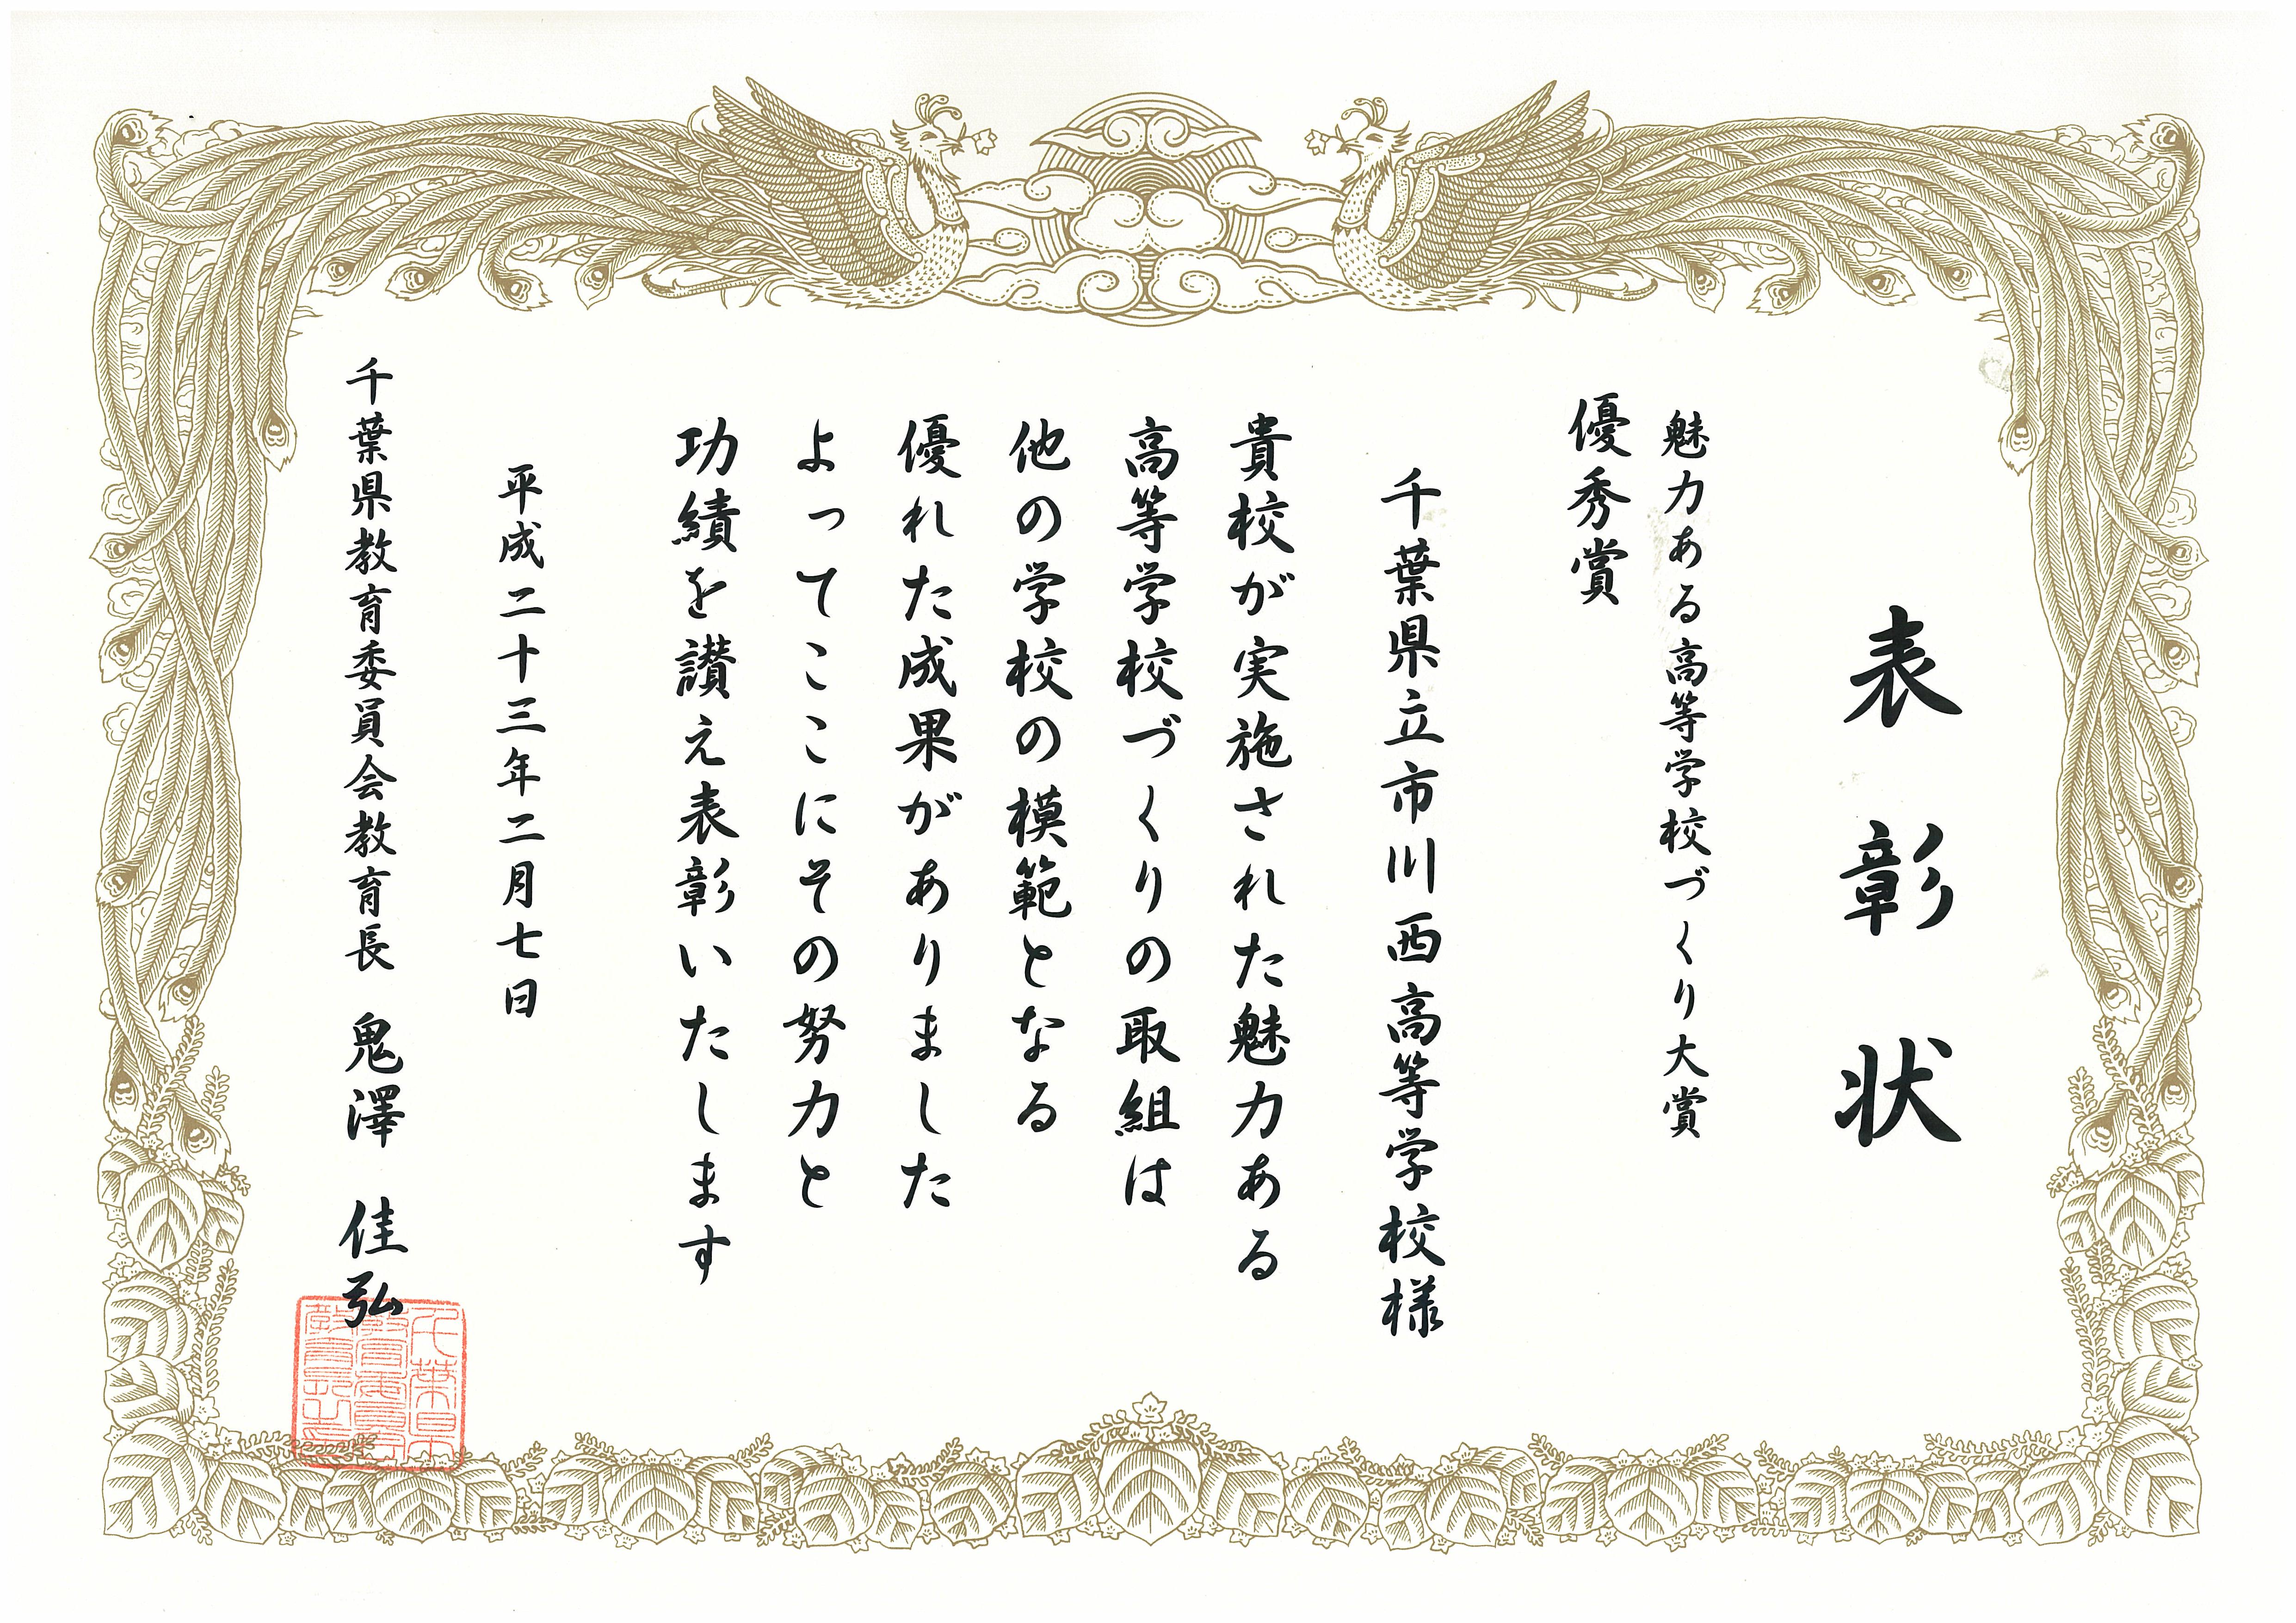 表彰状
魅力ある高等学校づくり大賞
優秀賞
千葉県立市川西高等学校様
貴校が実施された魅力ある
高等学校づくりの取組は
他の学校の模範となる
優れた成果がありました
よってここにその努力と
功績を讃え表彰いたします
平成二十三年二月七日
千葉県教育委員会教育長 鬼澤 佳弘
千葉県
教育委員会
教育長之印